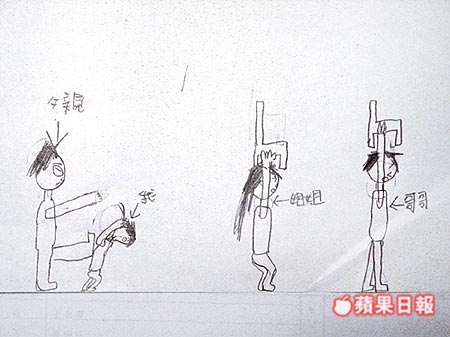 父親
我
姐姐
哥哥
蘋果日報